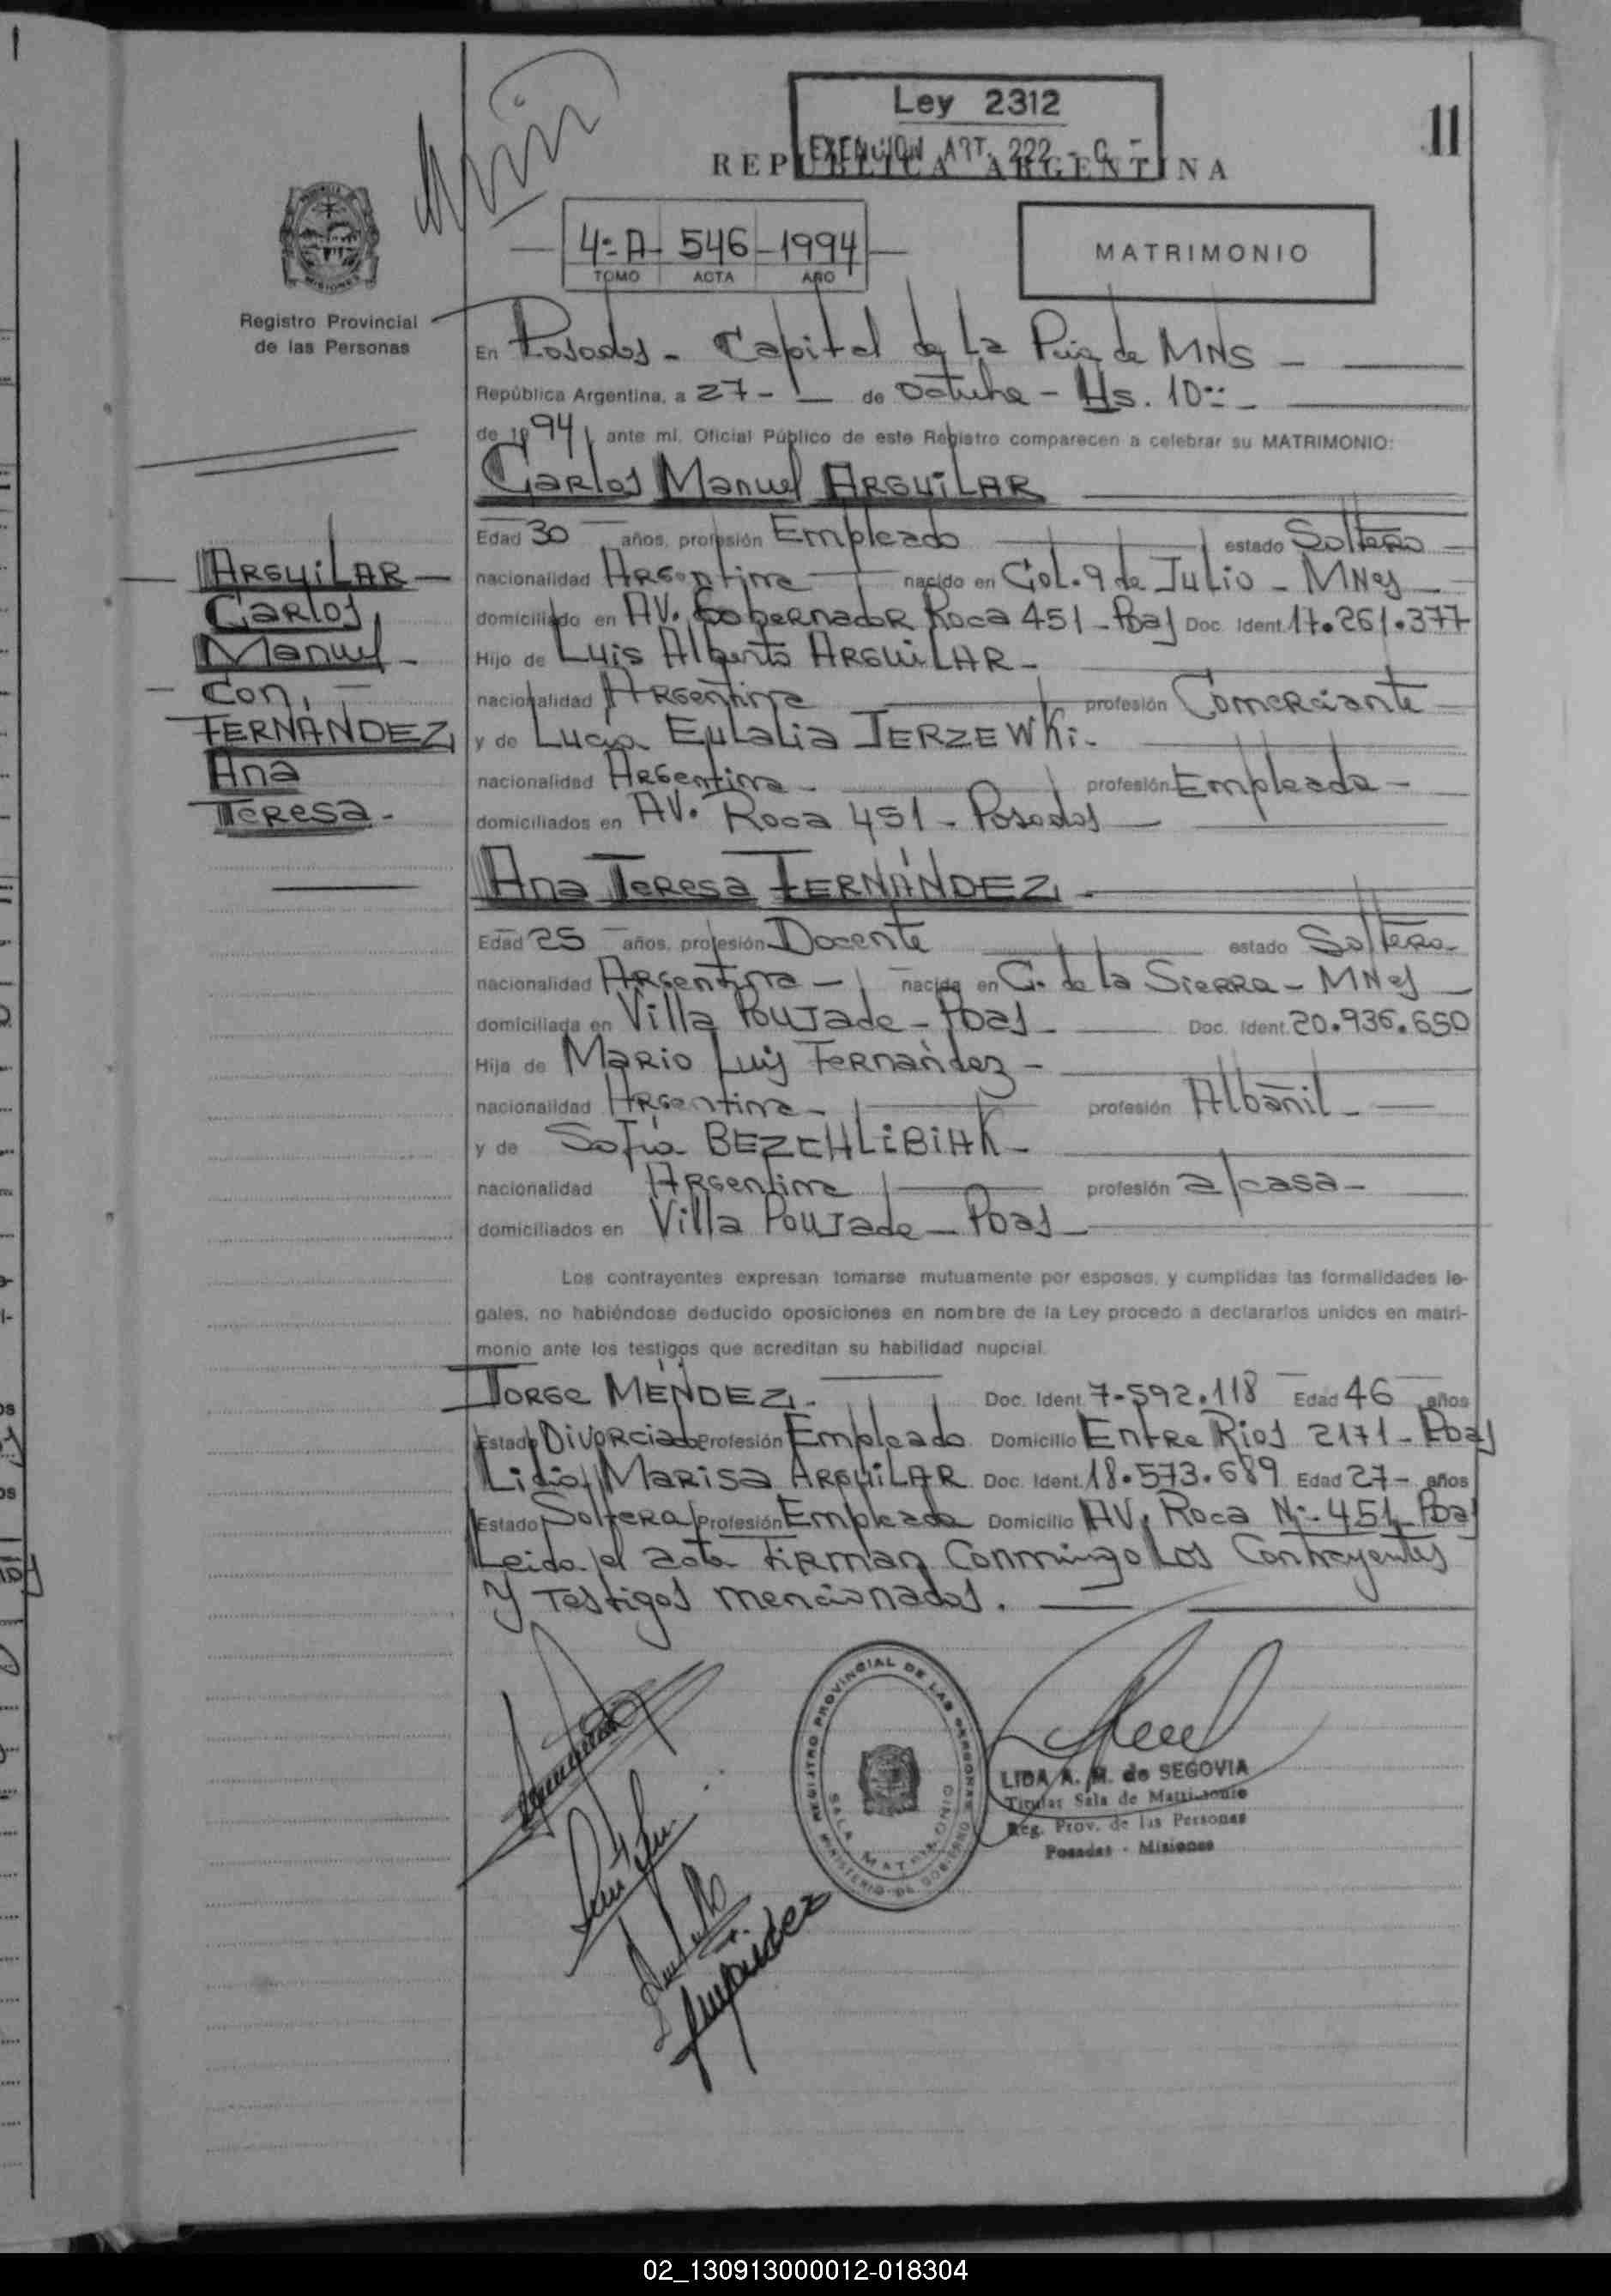 11
Ley 2312
EXENCION ART. 222 - C -
REPUBLICA ARGENTINA
4º A - 546 - 1994
TOMO ACTA AÑO
MATRIMONIO
MISIONES
Registro Provincial
de las Personas
En Posadas - Capital de La Pcia de MNS -
República Argentina, a 27 - de Octubre - Hs. 10:: -
de 1994, ante mí, Oficial Público de este Registro comparecen a celebrar su MATRIMONIO:
Carlos Manuel ARGUILAR
Edad 30 años, profesión Empleado estado Soltero
nacionalidad Argentina nacido en Col. 9 de Julio - MNes
domiciliado en AV. Gobernador Roca 451 - Pdas Doc. Ident. 17.261.377
Hijo de Luis Alberto ARGUILAR -
nacionalidad Argentina profesión Comerciante
y de Lucia Eulalia JERZEWKi -
nacionalidad Argentina - profesión Empleada -
domiciliados en AV. Roca 451 - Posadas
ARGUILAR
Carlos
Manuel -
- Con, -
FERNANDEZ,
Ana
Teresa -
Ana Teresa FERNÁNDEZ, -
Edad 25 años, profesión Docente estado Soltera -
nacionalidad Argentina - nacida en C. de la Sierra - MNes
domiciliada en Villa Poujade - Pdas - Doc. Ident. 20.936.650
Hija de Mario Luis Fernández -
nacionalidad Argentina - profesión Albañil -
y de Sofía BEZCHLIBIAK -
nacionalidad Argentina profesión a/casa -
domiciliados en Villa Poujade - Pdas -
Los contrayentes expresan tomarse mutuamente por esposos, y cumplidas las formalidades le-
gales, no habiéndose deducido oposiciones en nombre de la Ley procedo a declararlos unidos en matri-
monio ante los testigos que acreditan su habilidad nupcial.
Jorge MÉNDEZ, - Doc. Ident. 7.592.118 Edad 46 años
Estado Divorciado Profesión Empleado Domicilio Entre Rios 2171 - Pdas
Lidia Marisa ARGUILAR Doc. Ident. 18.573.689 Edad 27 - años
Estado Soltera Profesión Empleada Domicilio AV. Roca Nº 451 - Pdas
Leida el acta firman Conmingo Los Contrayentes
y Testigos mencionados.
REGISTRO PROVINCIAL DE LAS PERSONAS
SALA MATRIMONIO
MINISTERIO DE GOBIERNO
LIDA A. M. de SEGOVIA
Titular Sala de Matrimonio
Reg. Prov. de las Personas
Posadas - Misiones
02_130913000012-018304